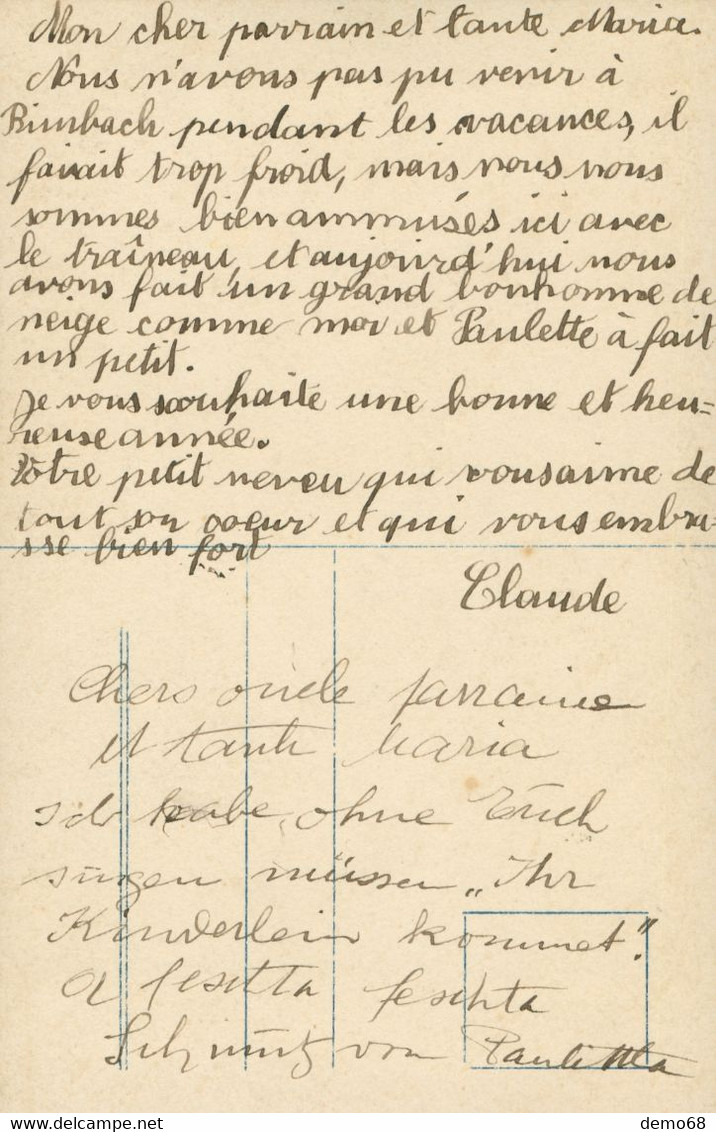 Mon cher parrain et tante Maria.
Nous n'avons pas pu venir à
Rimbach pendant les vacances, il
faisait trop froid, mais nous nous
sommes bien ammusés ici avec
le traîneau, et aujourd'hui nous
avons fait un grand bonhomme de
neige comme moi et Paulette à fait
un petit.
Je vous souhaite une bonne et heu=
reuse année.
Votre petit neveu qui vous aime de
tout son coeur et qui vous embra-
sse bien fort
Claude
Chers oncle parraine
et tante Maria
Ich habe ohne Euch
singen müssen „Ihr
Kinderlein kommet".
A feschta feschta
Schmutz von Paulettla
demo68